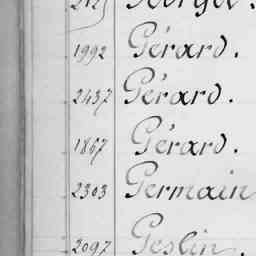 1992 Gérard.
2437 Gérard.
1867 Gérard.
2303 Germain
2097 Geslin.